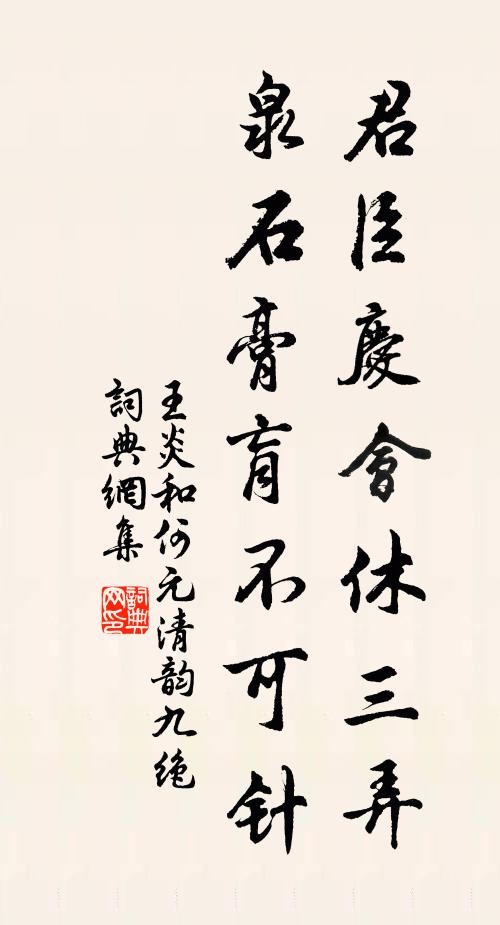 君臣慶會休三弄
泉石膏肓不可针
王炎和何元清韵九绝
詞典網集
詞典网印